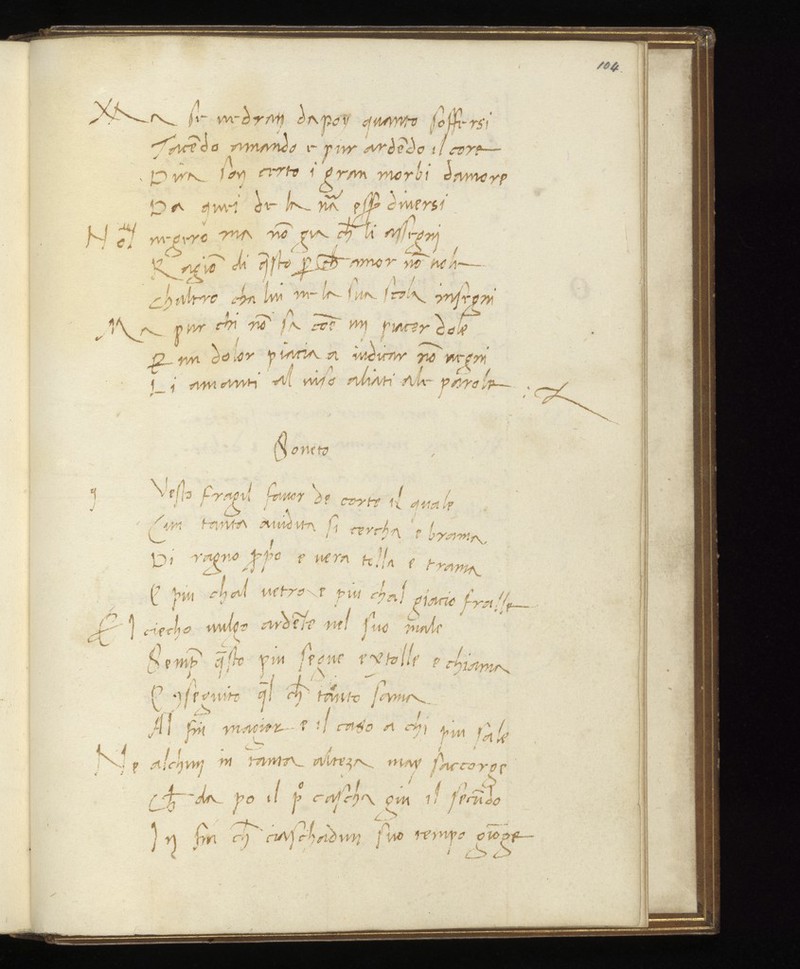 104
Ma se uedran dapoy quanto soffersi
Tacēdo amando e pur ardēdo il core
Dira son certo i gran morbi damore
Da quei de la nrā diuersi
negero ma nō gia ch̄ li assegni
Ragiō di q̄sto amor nō uole
Chaltro cha lui ne la sua scola insegni
Ma pur chi nō sa cōe un piacer dole
un dolor piacia a iudicar nō uegni
Li amanti al uiso aliati ale parole
Soneto
q Vesto fragil fauor de corte il quale
Cun tanta auidita si cercha e brama
Di ragno e uera tella e trama
E piu chal uetro e piu chal giacio fralle
El ciecho uulgo ardēte nel suo male
Semp̄ q̄sto piu segue extolle e chiama
E 9seguito q̄l ch̄ tanto sama
Al fin magior e il caso a chi piu sale
Ne alchun in tanta alteza may saccorge
Ch̄ da po il p° cascha giu il secūdo
In fin ch̄ ciaschadun suo tempo giōge